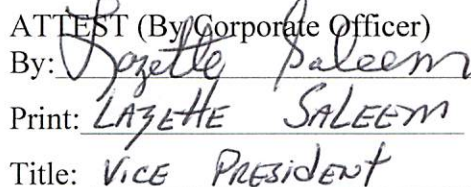 ATTEST (By Corporate Officer)
By: Lazette Saleem
Print: LAZETTE SALEEM
Title: VICE PRESIDENT